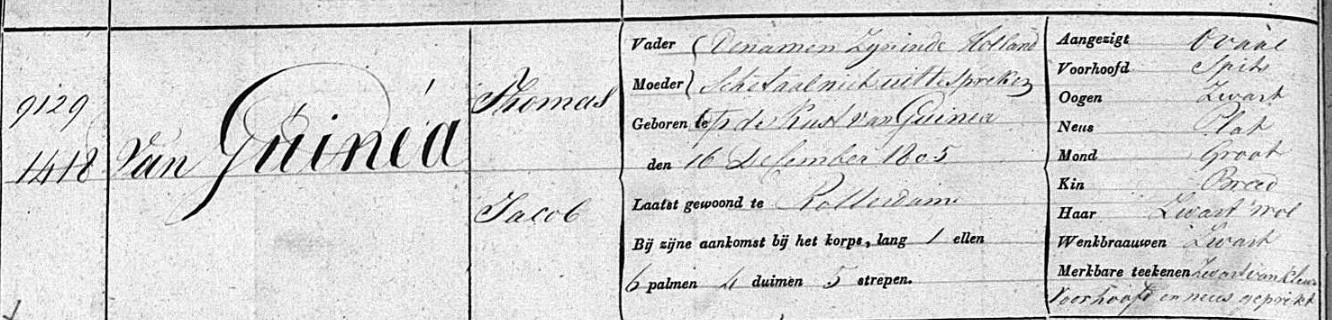 9129
1418
Van Guinéa
Thomas
Jacob
Vader (De namen Zyn in de Holland
Moeder) Sche taal niet uit te spreken
Geboren te Op de Kust van Guinea
den 16 December 1805
Laatst gewoond te Rotterdam
Bij zijne aankomst bij het korps, lang 1 ellen
6 palmen 4 duimen 5 strepen.
Aangezigt Ovaal
Voorhoofd Spits
Oogen Zwart
Neus Plat
Mond Groot
Kin Breed
Haar Zwart Wol
Wenkbraauwen Zwart
Merkbare teekenen Zwart van kleur
Voorhoofd en neus geprikt